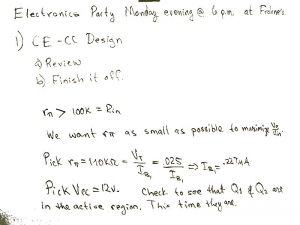 Electronics Party Monday evening @ 6 p.m. at Froine's
1) CE-CC Design
a) Review
b) Finish it off.
rπ > 100K = Rin
We want rπ as small as possible to minimize
Pick rπ = 110KΩ = VT/IB1 = .025/IB1 ⇒ IB1 = .227μA
Pick Vcc = 12v. Check to see that Q1 & Q2 are
in the active region. This time they are.